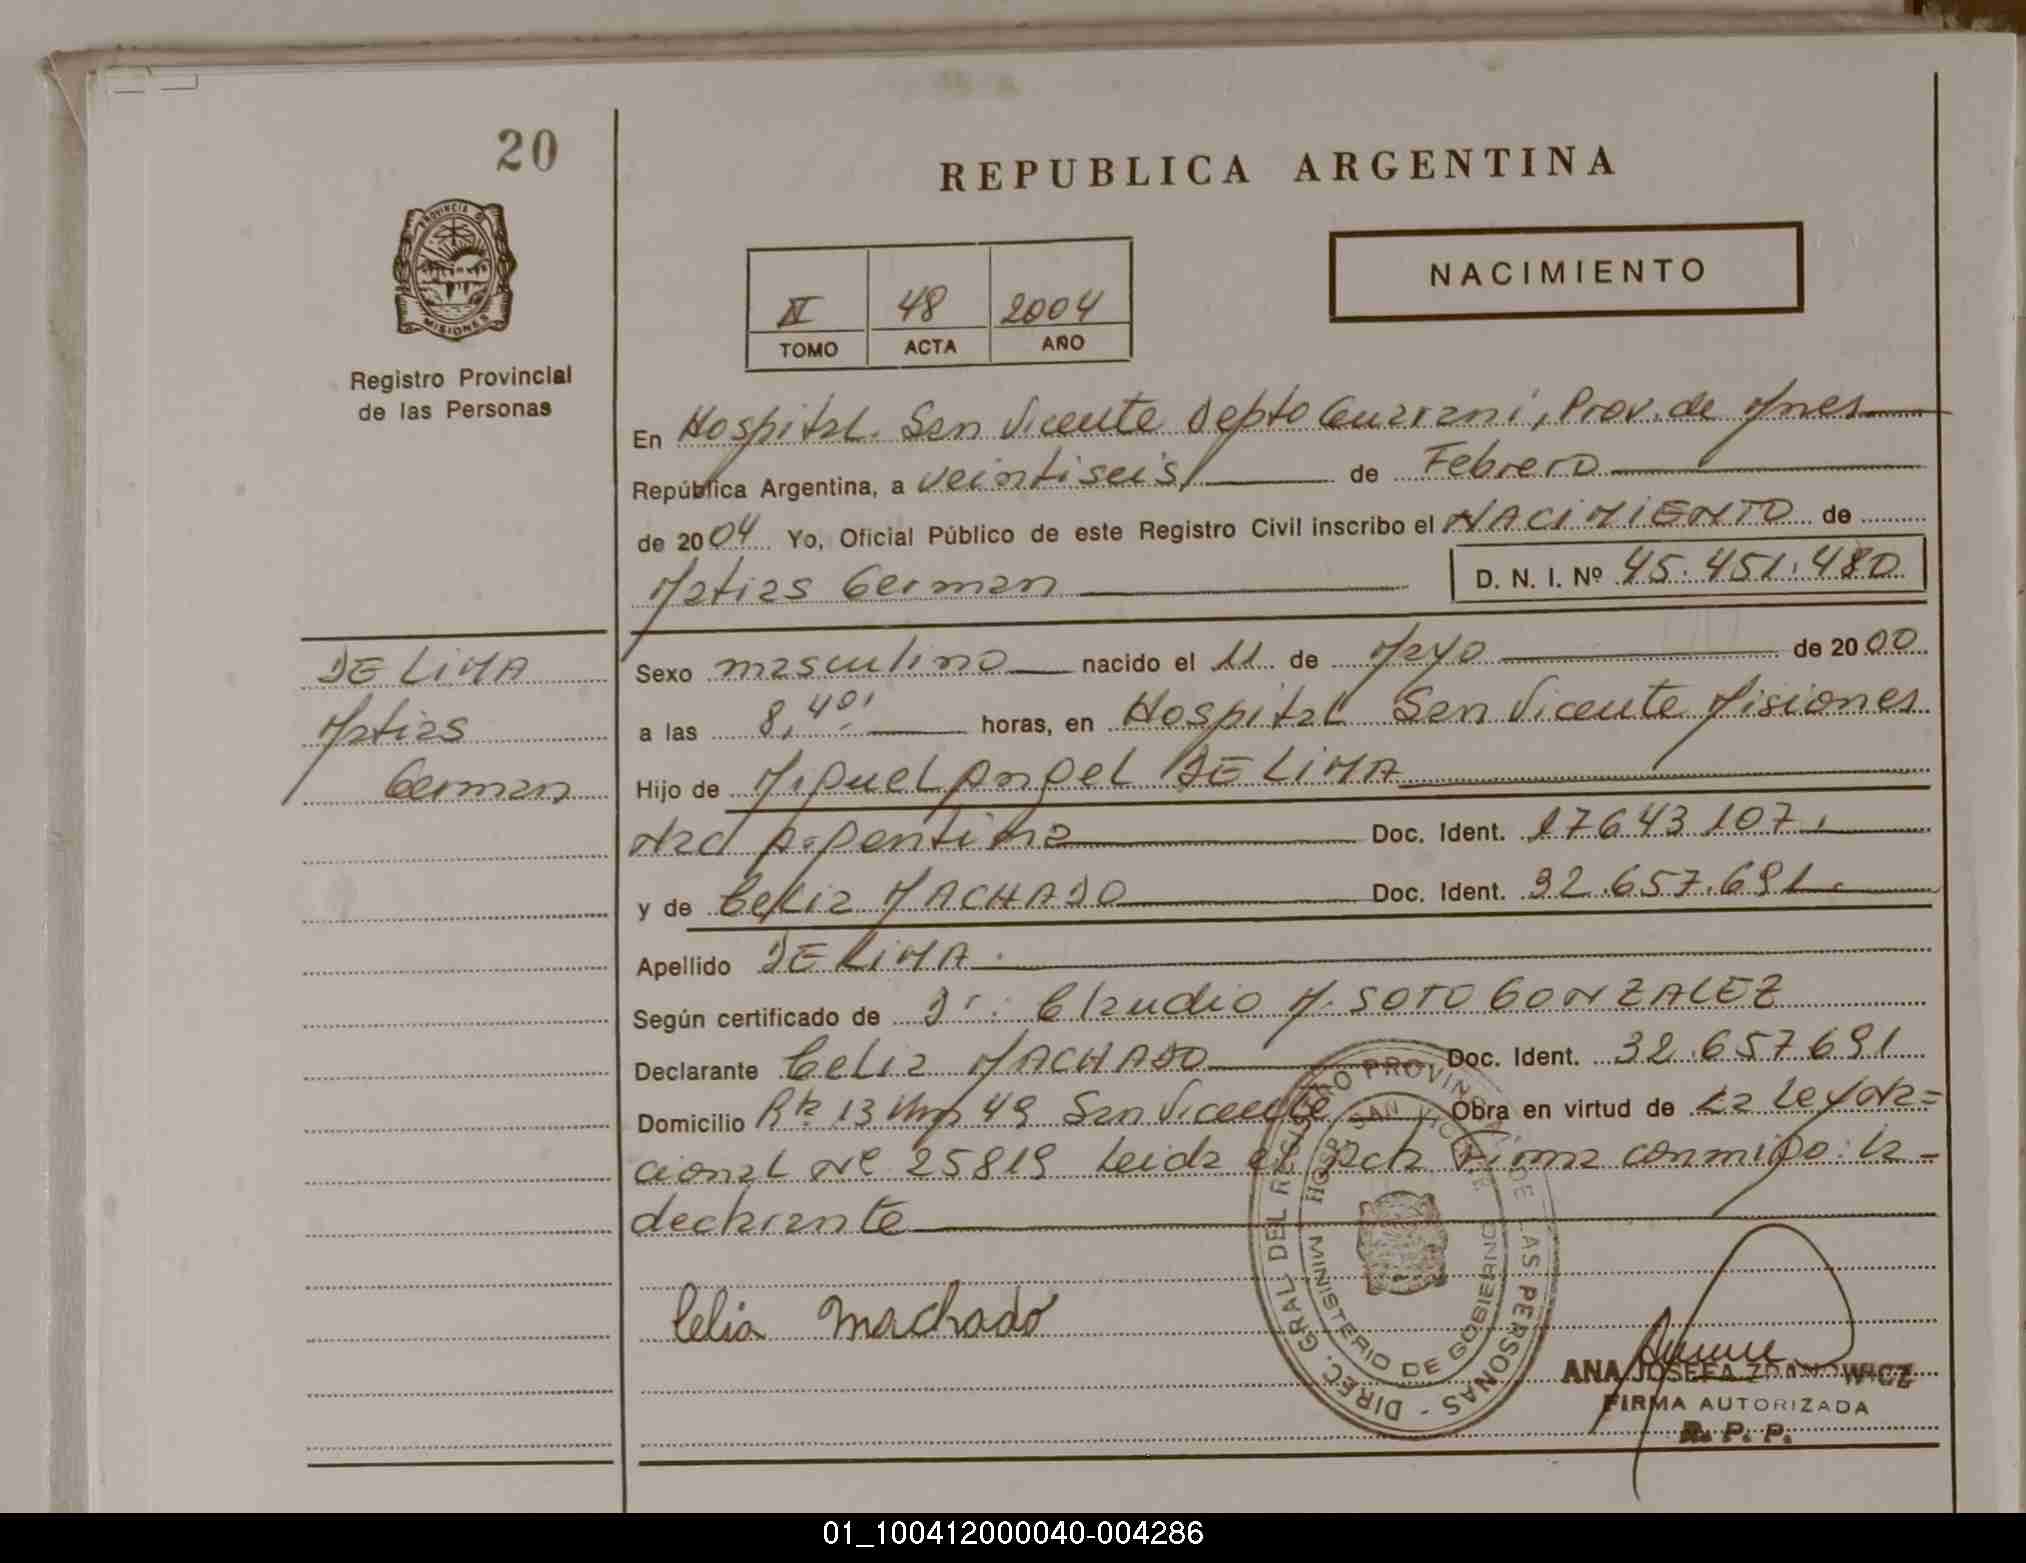 20
REPUBLICA ARGENTINA
PROVINCIA DE
MISIONES
Registro Provincial
de las Personas
NACIMIENTO
48 2004
TOMO ACTA AÑO
En Hospital San Vicente Depto Guarani, Prov. de Mnes
República Argentina, a veintiseis de Febrero
de 2004 Yo, Oficial Público de este Registro Civil inscribo el NACIMIENTO de
Matias German D. N. I. Nº 45.451.480
DE LIMA
Matias
German
Sexo masculino nacido el 11 de Mayo de 2000
a las 8,40' horas, en Hospital San Vicente Misiones
Hijo de Miguel Angel DE LIMA
Nac Argentina Doc. Ident. 17643107.
y de Celia MACHADO Doc. Ident. 32.657.691.
Apellido DE LIMA.
Según certificado de Dr. Claudio M. SOTO GONZALEZ
Declarante Celia MACHADO Doc. Ident. 32.657691
Domicilio Rta 13 Km 49 San Vicente Obra en virtud de La Ley Na=
cional Nº 25819 Leida el Acta Firma conmigo: la -
declarante
Celia Machado
DIREC. GRAL DEL REGISTRO PROVINCIAL DE LAS PERSONAS -
MINISTERIO DE GOBIERNO
HOSP. SAN VICENTE
ANA JOSEFA ZDANOWICZ
FIRMA AUTORIZADA
R. P. P.
01_100412000040-004286